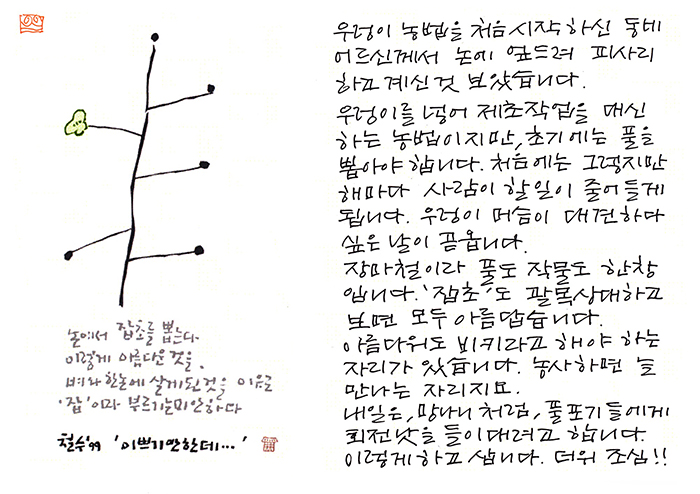 논에서 잡초를 뽑는다.
이렇게 아름다운것을.
벼와 한논에 살게된것을 이유로
'잡'이라 부르기는미안하다
철수'99 '이쁘기만한데…'
우렁이 농법을 처음시작하신 동네
어르신께서 논에 엎드려 피사리
하고계신것 보았습니다.
우렁이를 넣어 제초작업을 대신
하는 농법이지만, 초기에는 풀을
뽑아야합니다. 처음에는 그렇지만
해마다 사람이 할일이 줄어들게
됩니다. 우렁이 머슴이 대견하다
싶은 날이 곧옵니다.
장마철이라 풀도 작물도 한창
입니다. '잡초'도 괄목상대하고
보면 모두 아름답습니다.
아름다워도 비키라고 해야 하는
자리가 있습니다. 농사하면 늘
만나는 자리지요.
내일은, 망나니처럼, 풀포기들에게
회전낫을 들이대려고 합니다.
이렇게하고 삽니다. 더위 조심!!